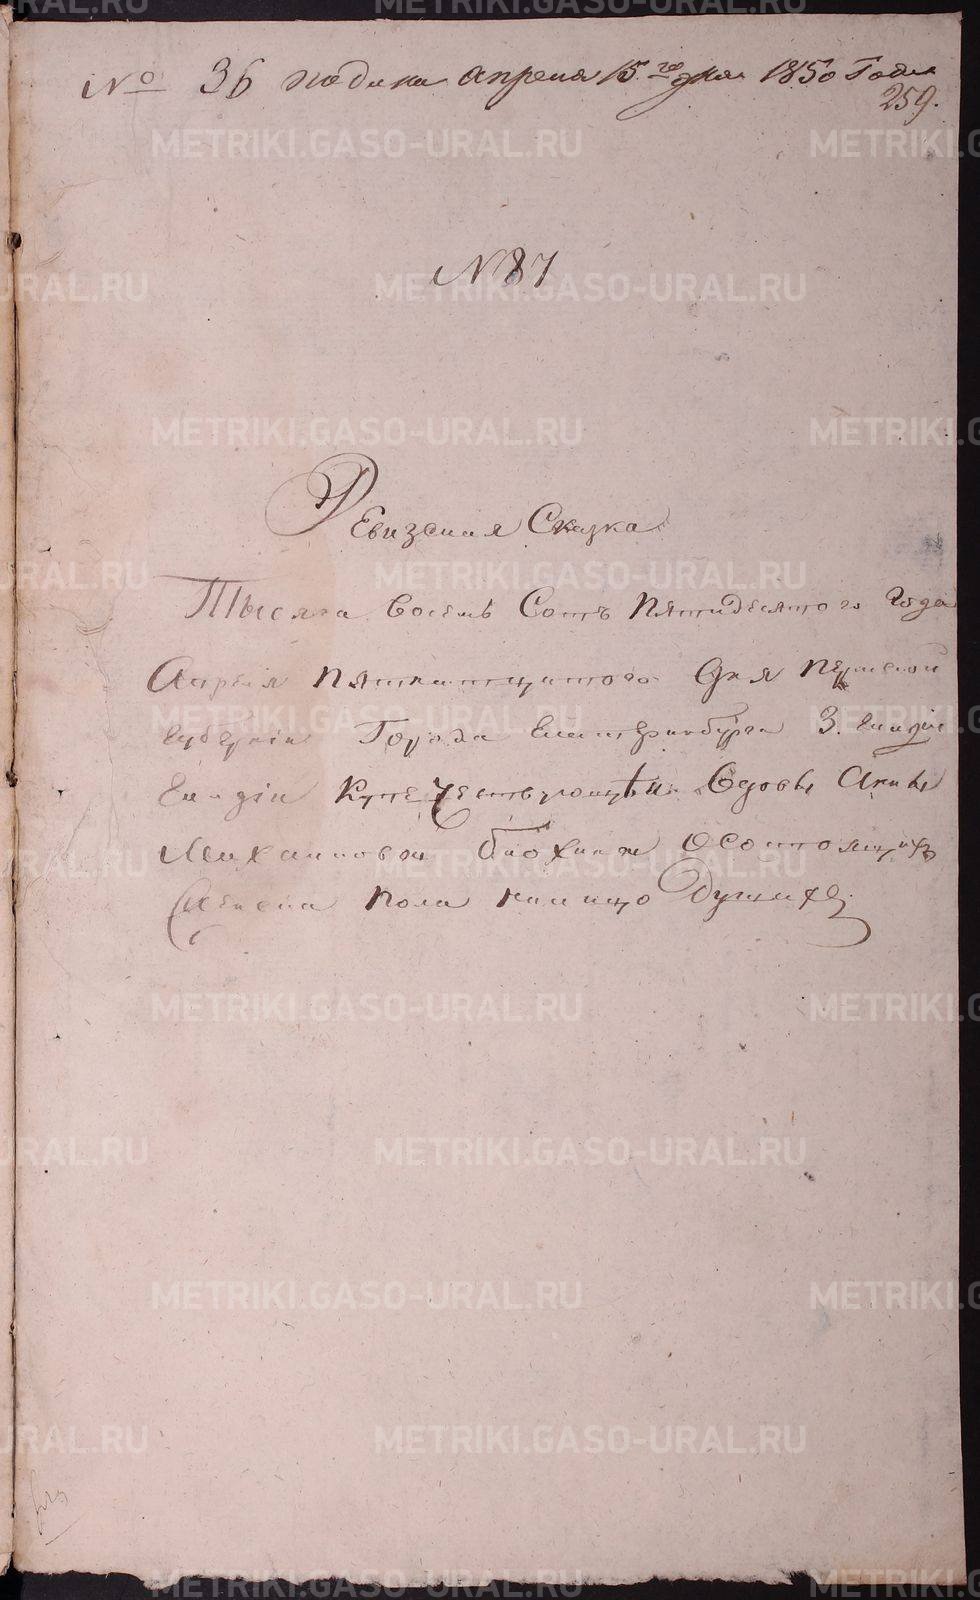 № 36 подана апреля 15го дня 1850 Года
259.
N 87
Ревизская Сказка
Тысяча восемь Сотъ Пятидесятого Года
Апреля Пятнатцатого Дня Пермской
губернiи Города Екатеринбурга 3. гильдiи
купечествующѣй Вдовы Анны
Михаиловой о Состоящихъ
Женска пола налицо Душахъ
METRIKI.GASO-URAL.RU